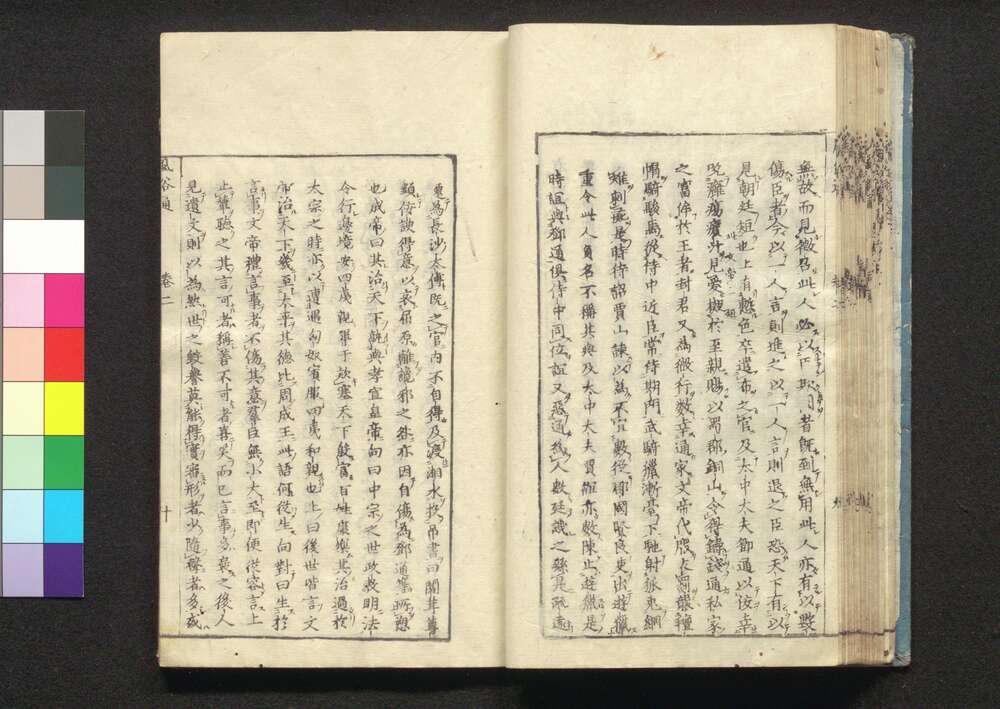 無故而見徴召此人必以臣欺陛下者既到無用此人亦有以毀
傷臣者今以一人言則進之以一人言則退之臣恐天下有以
見朝廷短也上有慙色卒遣布之官及太中大夫鄧通以佞幸
吮癰瘍膿汁見愛擬於至親賜以蜀郡銅山令得鑄錢通私家
之富侔於王者封君又為微行數幸通家文帝代服衣罽襲氈
帽騎駿馬從侍中近臣常侍期門武騎獵漸臺下馳射狐兔網
雉刺彘是時待詔賈山諫以為不宜數從郡國賢良吏出遊獵
重令此人負名不稱其與及太中大夫賈誼亦數陳止遊獵是
時誼與鄧通俱侍中同位誼又惡通為人數廷譏之繇是疏遠
遷為長沙太傅既之官内不自得及渡湘水投弔書曰闒茸尊
顯佞諛得意以哀屈原離讒邪之咎亦因自傷為鄧通等所愬
也成帝曰其治天下孰與孝宣皇帝向曰中宗之世政教明法
令行邊境安四夷親單于款塞天下殷富百姓康樂其治過於
太宗之時亦以遭遇匈奴賓服四夷和親也上曰後世皆言文
帝治天下幾至太平其德比周成王此語何從生向對曰生於
言事文帝禮言事者不傷其意羣臣無小大至即便從容言上
止輦聽之其言可者稱善不可者喜笑而已言事多褒之後人
見遺文則以為然世之毀譽莫能得實審形者少隨聲者多或
風俗通
卷二
十